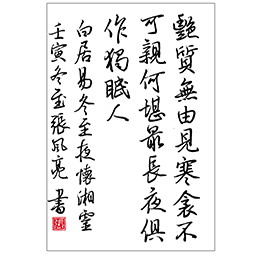 艷質無由見寒衾不
可親何堪最長夜俱
作獨眠人
白居易冬至夜懷湘靈
壬寅冬至張風亮書